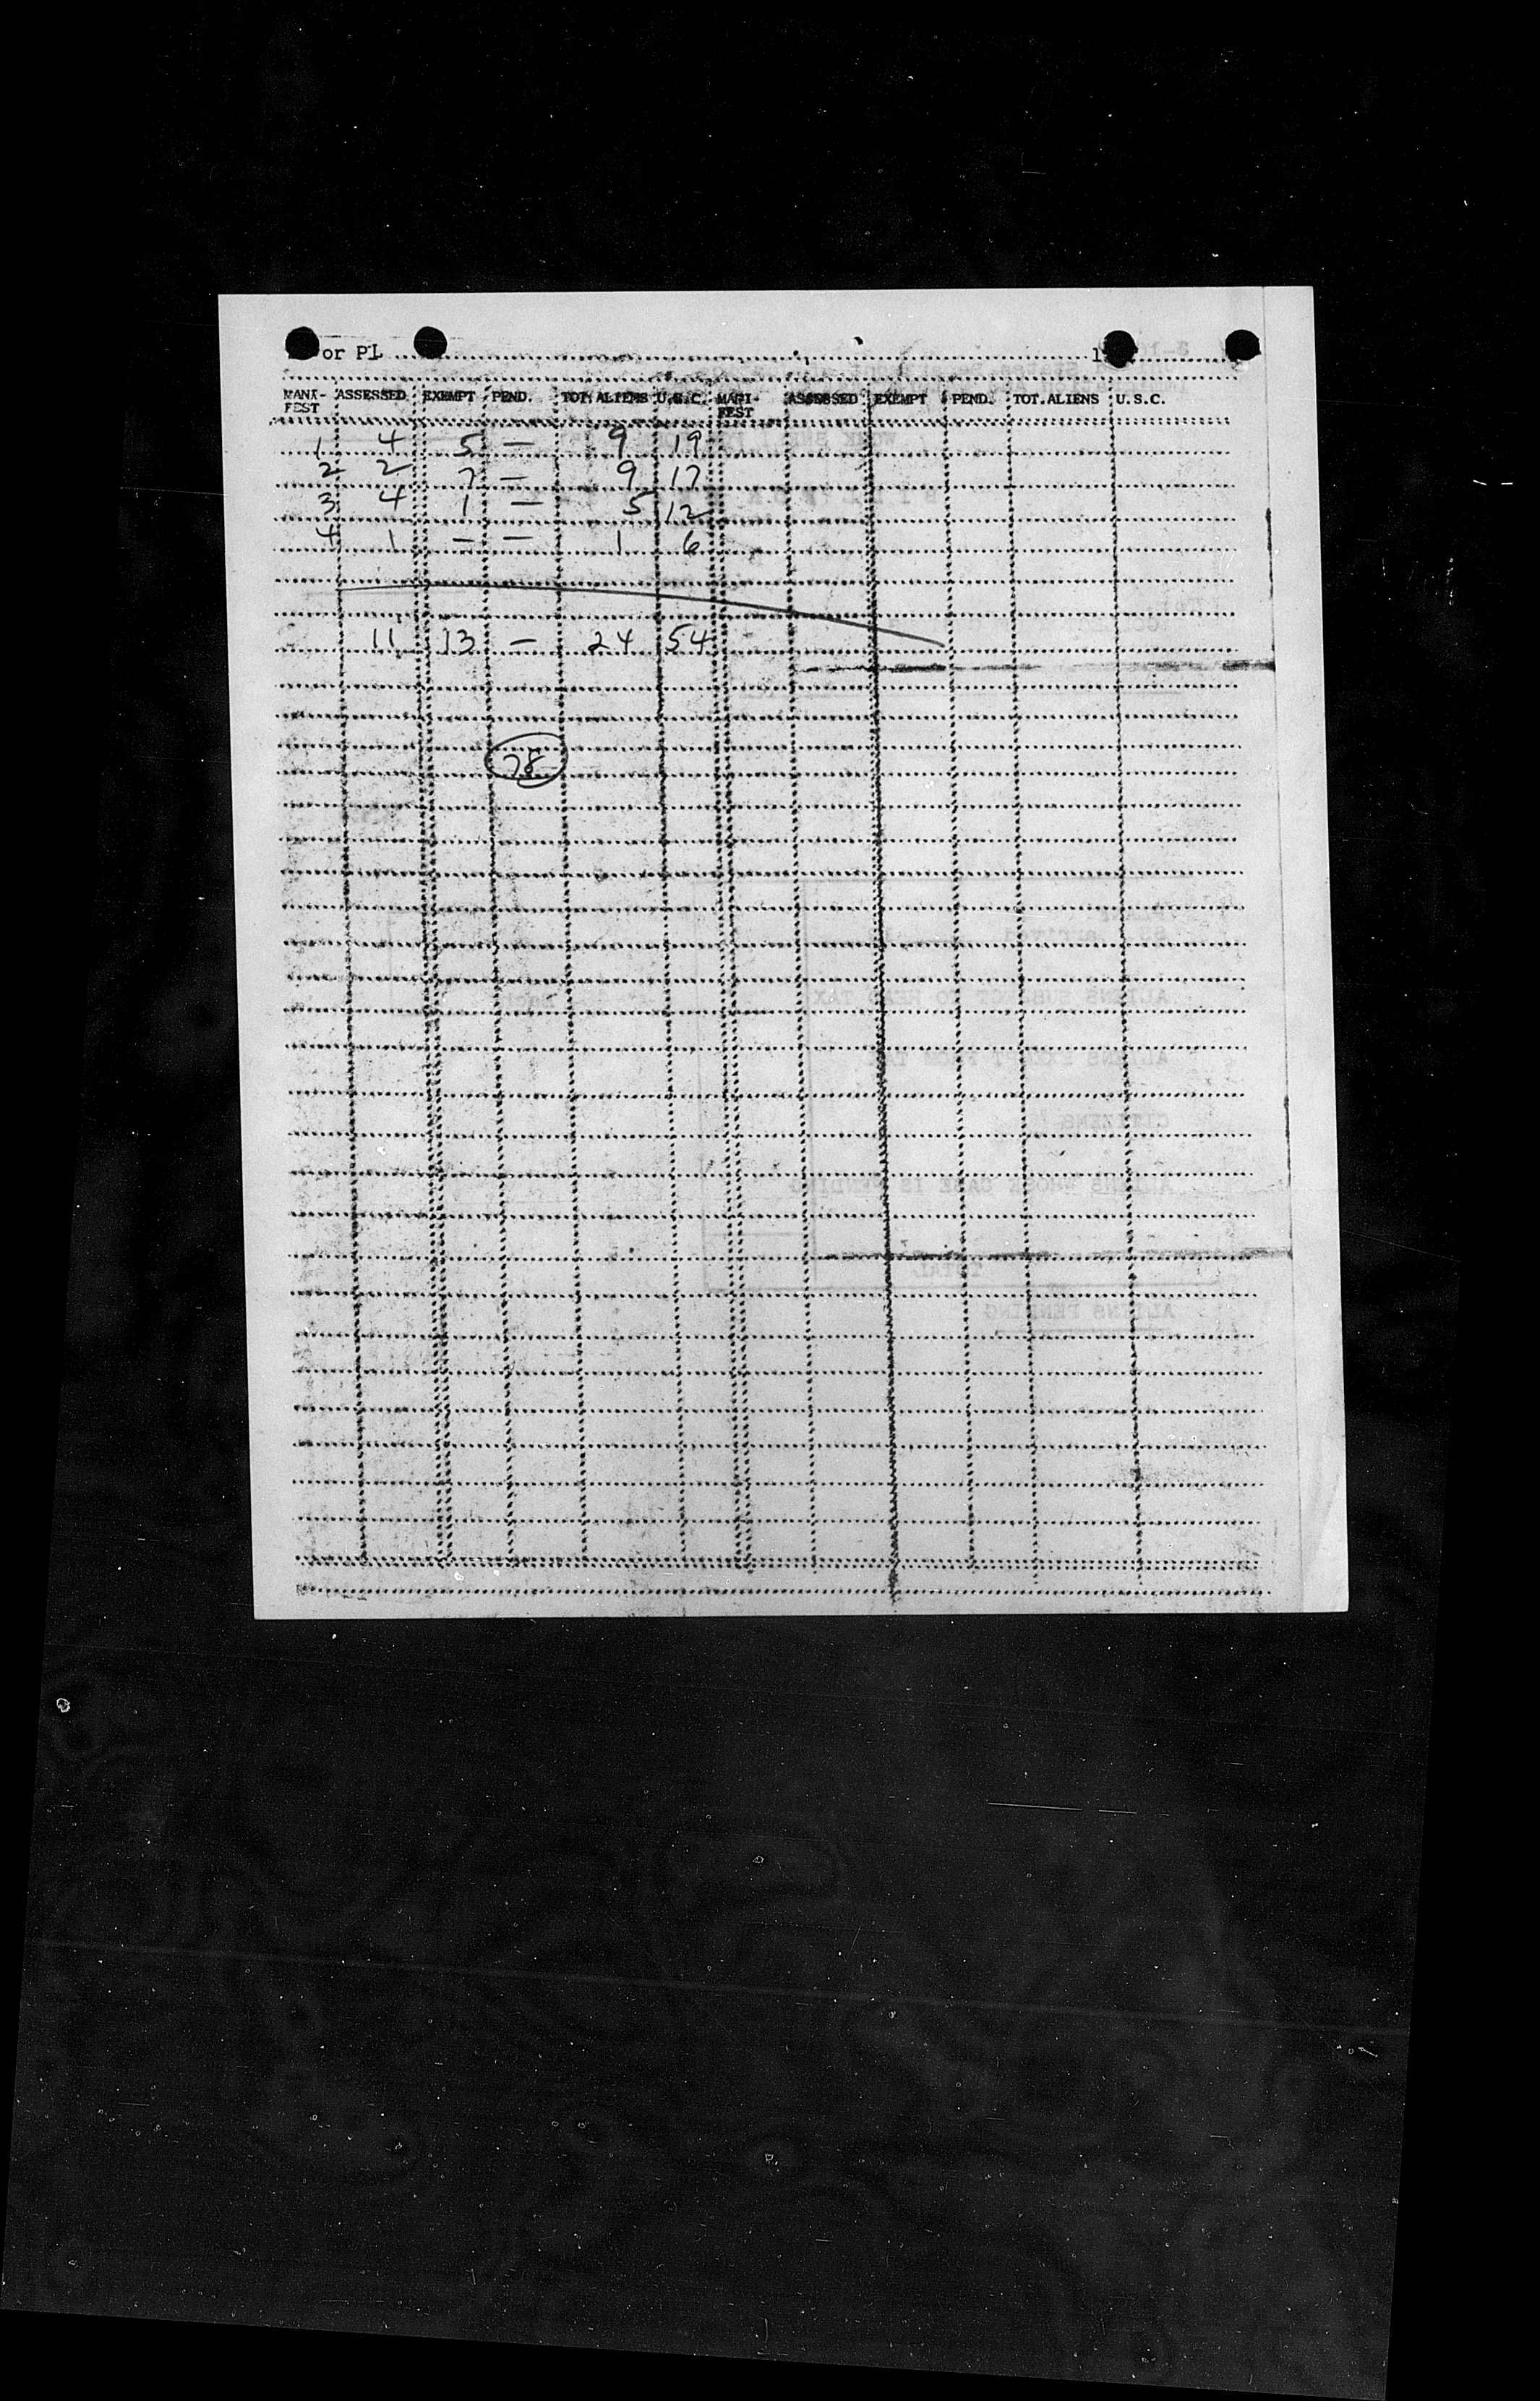 or PL
MANI-FEST ASSESSED EXEMPT PEND. TOT. ALIENS U.S.C. MANI-FEST ASSESSED EXEMPT PEND. TOT. ALIENS U.S.C.
1 4 5 — 9 19
2 2 7 — 9 17
3 4 1 — 5 12
4 1 — — 1 6
11 13 — 24 54
78